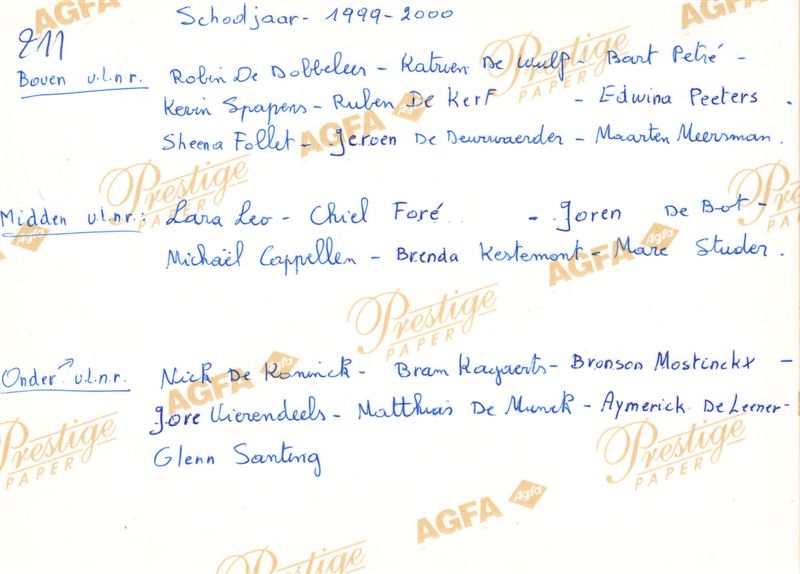 Schooljaar - 1999-2000
211
Boven v.l.n.r. Robin De Dobbeleer - Katrien De Wulf - Bart Petré -
Kevin Spapens - Ruben De Kerf - Edwina Peeters .
Sheena Follet - Jeroen De Deurwaerder - Maarten Meersman .
Midden v.l.n.r.: Lara Leo - Chiel Foré - Joren De Bot -
Michaël Cappellen - Brenda Kestemont - Marc Studer .
Onder v.l.n.r. Nick De Koninck - Bram Kayaerts - Bronson Mostinckx -
Jore Vierendeels - Matthias De Munck - Aymerick De Leener -
Glenn Santing
AGFA
Prestige
PAPER
AGFA Agfa
Prestige
PAPER
Prestige
PAPER
AGFA Agfa
Prestige
PAPER
AGFA Agfa
Prestige
PAPER
Prestige
PAPER
AGFA Agfa
Prestige